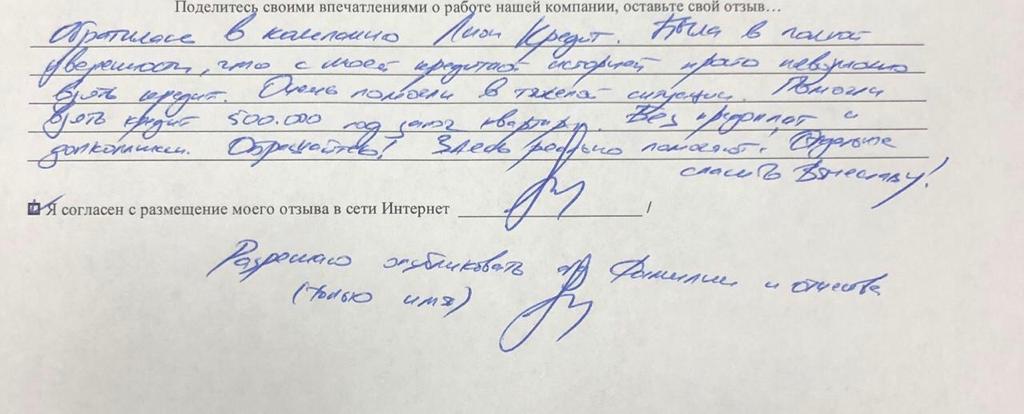 Поделитесь своими впечатлениями о работе нашей компании, оставьте свой отзыв…
Обратилась в компанию Лион Кредит. Была в полной
уверенности, что с моей кредитной историей просто невозможно
взять кредит. Очень помогли в тяжелой ситуации. Помогли
взять кредит 500.000 под залог квартиры. Без предоплат и
Обращайтесь! Здесь реально помогают! Отдельное
спасибо Вячеславу!
Я согласен с размещение моего отзыва в сети Интернет /
Разрешаю опубликовать Фамилии и отчества
(только имя)